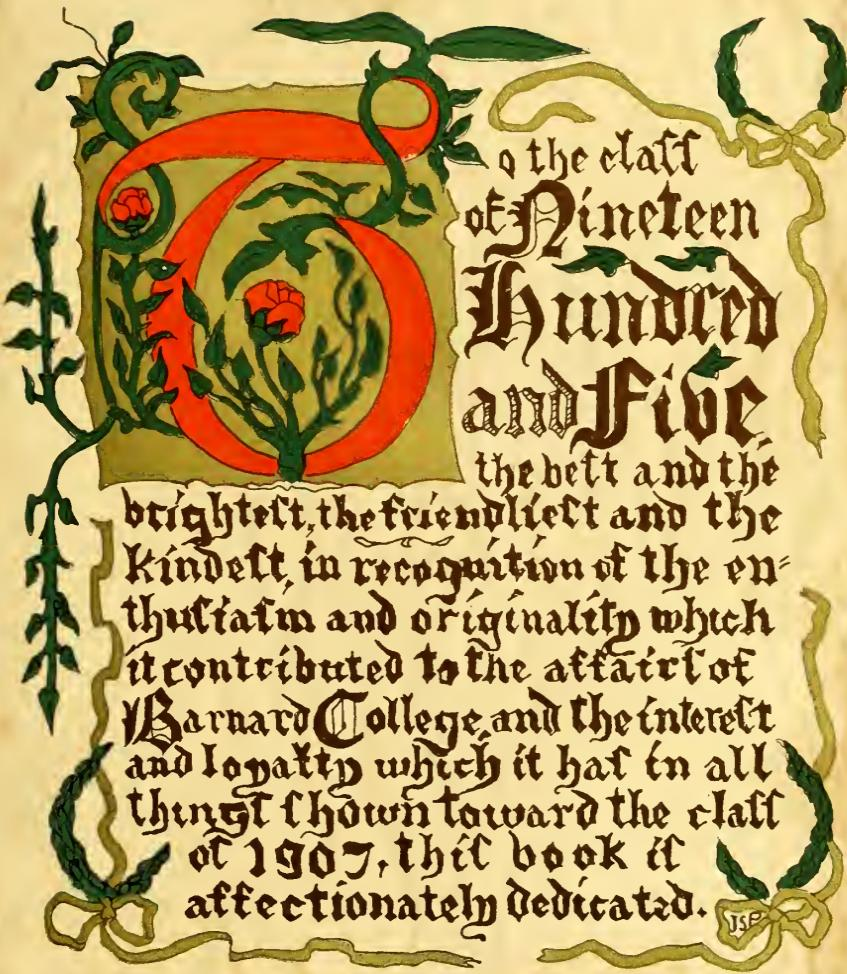 To the claſſ
of Nineteen
Hundred
and Five,
the beſt and the
brighteſt, the friendlieſt and the
kindeſt, in recognition of the en=
thuſiaſm and originality which
it contributed to the affairſ of
Barnard College, and the intereſt
and loyalty which it haſ in all
thingſ ſhown toward the claſſ
of 1907, thiſ book iſ
affectionately dedicated.
JSP